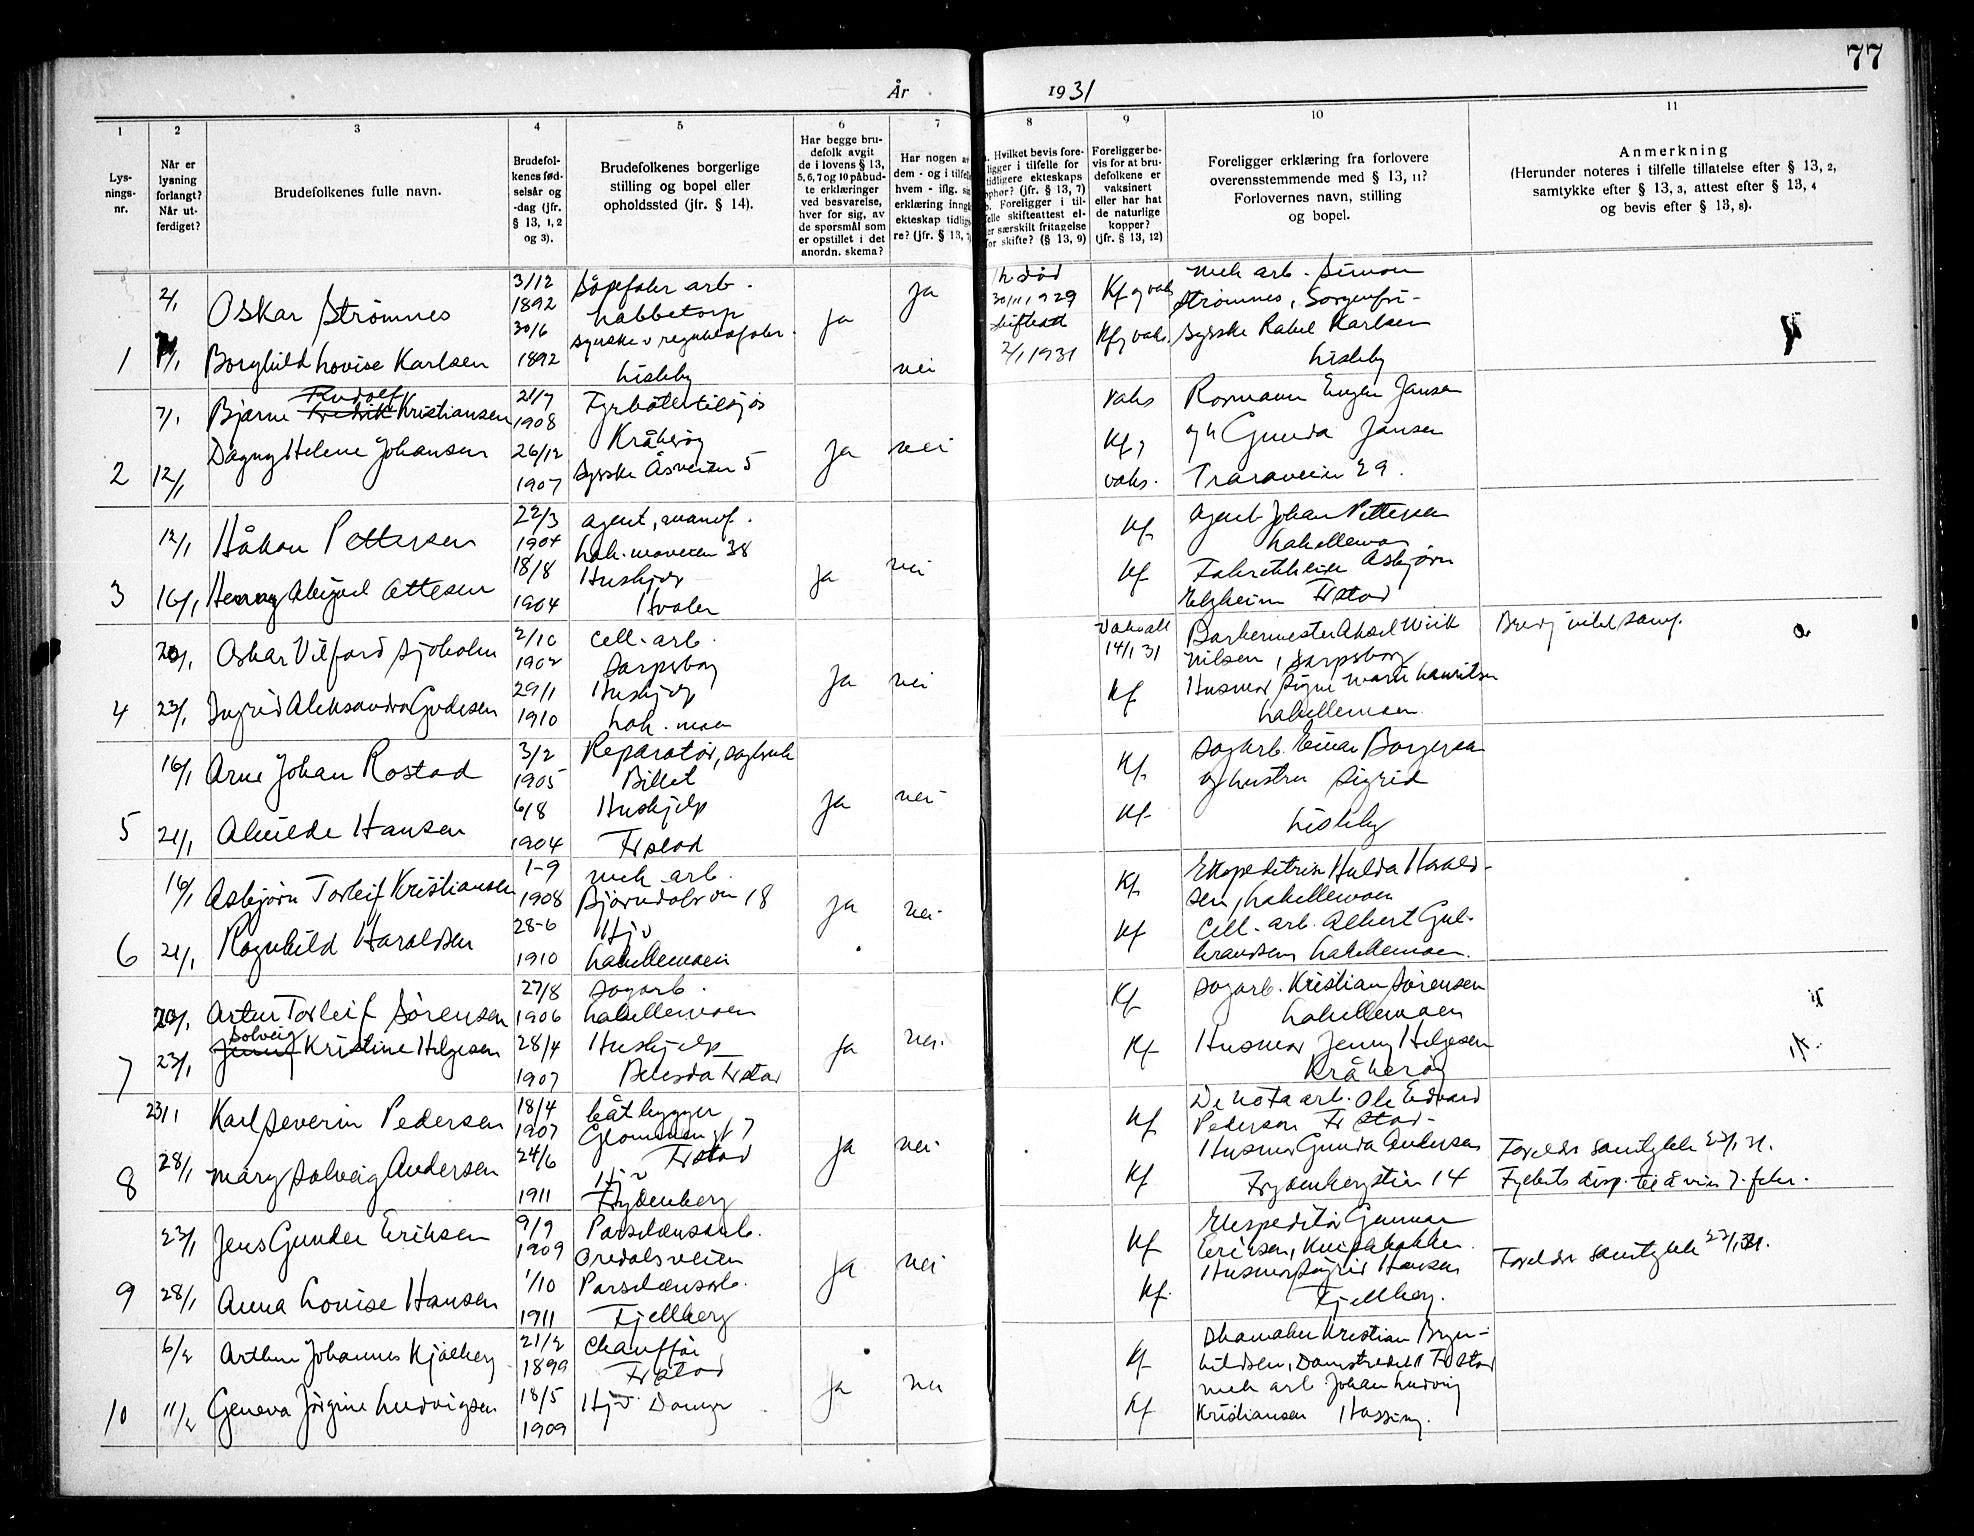 77
År 1931
1 2 3 4 5 6 7 8 9 10 11
Lys-
nings-
nr.
Når er
lysning
forlangt?
Når ut-
ferdiget?
Brudefolkenes fulle navn.
Brudefol-
kenes fød-
selsår og
-dag (jfr.
§ 13, 1, 2
og 3).
Brudefolkenes borgerlige
stilling og bopel eller
opholdssted (jfr. § 14).
Har begge bru-
defolk avgit
de i lovens § 13,
5, 6, 7 og 10 påbud-
te erklæringer
ved besvarelse,
hver for sig, av
de spørsmål som
er opstillet i det
anordn. skema?
Har nogen a
dem - og i tilfel
hvem - iflg. si
erklæring inng
ekteskap tidlig
re? (jfr. § 13,
a. Hvilket bevis fore-
ligger i tilfelle for
tidligere ekteskaps
ophør? (jfr. § 13, 7)
b. Foreligger i til-
felle skifteattest el-
er særskilt fritagelse
for skifte? (§ 13, 9)
Foreligger be-
vis for at bru-
defolkene er
vaksinert
eller har hat
de naturlige
kopper?
(jfr. § 13, 12)
Foreligger erklæring fra forlovere
overensstemmende med § 13, 11?
Forlovernes navn, stilling
og bopel.
Anmerkning
(Herunder noteres i tilfelle tillatelse efter § 13, 2,
samtykke efter § 13, 3, attest efter § 13, 4
og bevis efter § 13, 8).
1
2/1
Oskar Strømnes
Borghild Lovise Karlsen
3/12
1892
30/6
1892
arb.
Labbetorp
Lisleby
Ja
Ja
nei
h. død
30/11 1929
2/1 1931
Kf og vaks
Kf og vaks.
mek arb. Simon
Strømnes, Sorgenfri
Syerske Rakel Karlsen
Lisleby
2
7/1
12/1
Bjarne Rudolf Kristiansen
Dagny Helene Johansen
21/7
1908
26/12
1907
Fyrbøter tilsjøs
Kråkerøy
Syerske Åsveien 5
Ja
nei
vaks
Kf,
vaks.
Rormann Eugen Jansen
og h Gunda Jansen
Traraveien 29.
3
12/1
16/1
Håkon Pettersen
Henny Abigael Ottesen
22/3
1904
18/8
1904
agent, manuf.
Lak. moveien 38
Hushjelp
Hvaler
Ja
nei
Kf
Kf
Agent Johan Pettersen
Lakellemoen
Asbjørn
Fr stad
4
20/1
23/1
Oskar Vilfard Sjøholm
Ingrid Aleksandra Gudesen
2/10
1902
29/1
1910
Cell. arb.
Sarpsborg
Hushjelp
Lak. moen
Ja
nei
Vaks att
14/1 31
Kf
Barbermester Aksel Wiik
Nilsen, Sarpsborg
Husmor Signe Marie Lauritsen
Lakellemoen
5
16/1
21/1
Arne Johan Rostad
Alvilde Hansen
3/2
1905
6/8
1904
Reparatør, sagbruk
Billet
Hushjelp
Fr stad
Ja
nei
Kf.
Kf.
Sagarb. Einar Borgersen
og hustru Sigrid
Lisleby
6
16/1
21/1
Asbjørn Torleif Kristiansen
Ragnhild Haraldsen
1-9
1908
28-6
1910
mek. arb.
Bjørndalsvn 18
Hjv
Lakellemoen
Ja
nei
Kf
Kf
Ekspeditrise Hulda Harald-
sen, Lakellemoen
Cell. arb. Albert Gul-
brandsen, Lakellemoen.
7
20/1
23/1
Artur Torleif Sørensen
Solveig
Jenny Kristine Helgesen
27/8
1906
28/4
1907
Sagarb.
Lakellemoen
Hushjelp
Betesda Fr stad
Ja
nei
Kf
Kf
Sagarb. Kristian Sørensen
Lakellemoen
Husmor Jenny Helgesen
Kråkerøy
8
23/1
28/1
Karl Severin Pedersen
Mary Solveig Andersen
18/4
1907
24/6
1911
båtbygger
Glommengt 7
Fr stad
Hjv
Frydenberg
Ja
nei
Kf
Kf
De No Fa arb. Ole Edvard
Pedersen Fr stad.
Husmor Gunda Andersen
Frydenbergstien 14
Foreldres samtykke 23/1 31.
Fylkets disp.
9
23/1
28/1
Jens Gunder Eriksen
Anna Lovise Hansen
9/9
1909
1/10
1911
Porselensarb.
Oredalsveien
Porselensarb.
Fjellberg
Ja
nei
Kf
Kf.
Ekspeditør Gunnar
Eriksen, Knipabakken
Husmor Sigrid Hansen
Fjellberg.
Foreldres samtykke 23/1 31.
10
6/2
11/2
Arthur Johannes Kjølberg
Geneva Jørgine Ludvigsen
21/2
1899
18/5
1909
Chauffør
Fr stad
Hjv.
Ja
nei
Kf
Kf
Skomaker Kristian Bryn-
hildsen, Fr stad
mek arb. Johan Ludvig
Kristiansen Hassing.